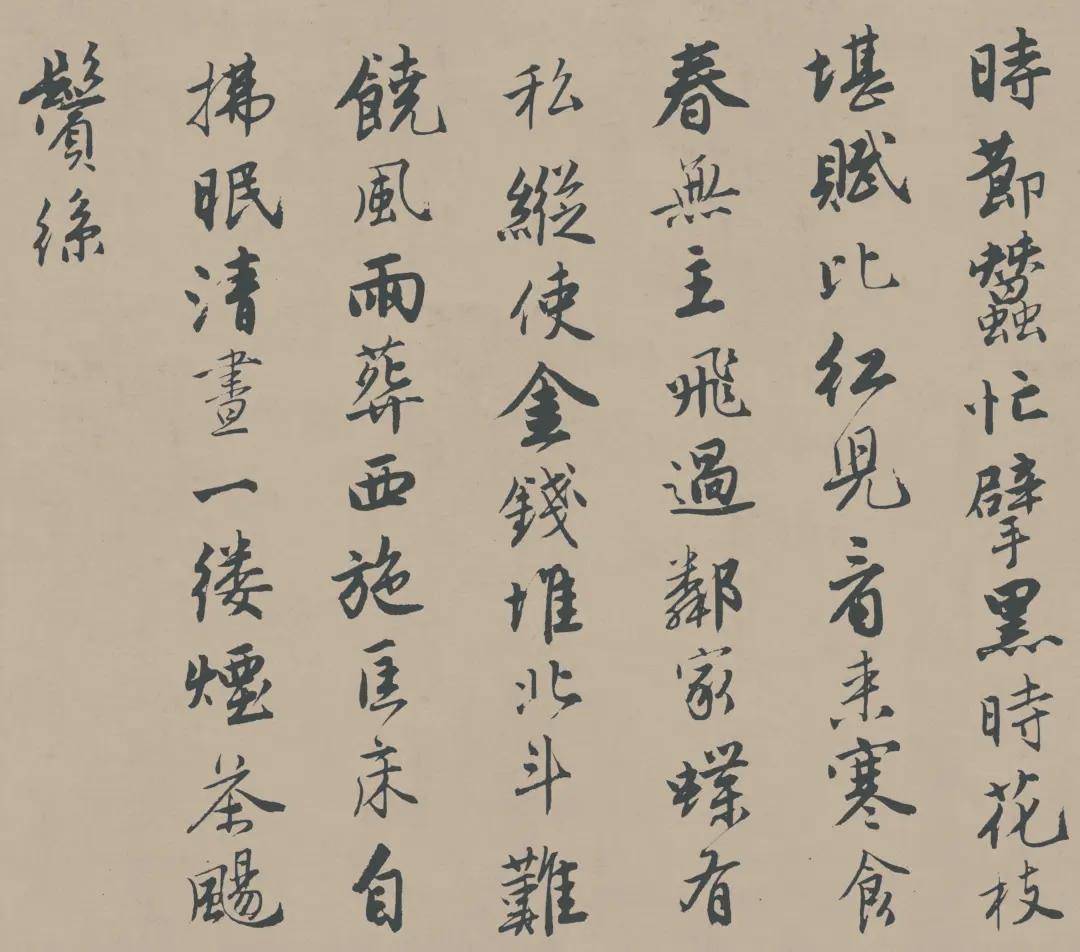 時莭蠶忙擘黑時花枝
堪賦比紅兒看来寒食
春無主飛過鄰家蝶有
私縱使金錢堆北斗難
饒風雨葬西施匡床自
拂眠清晝一縷煙茶颺
鬢絲